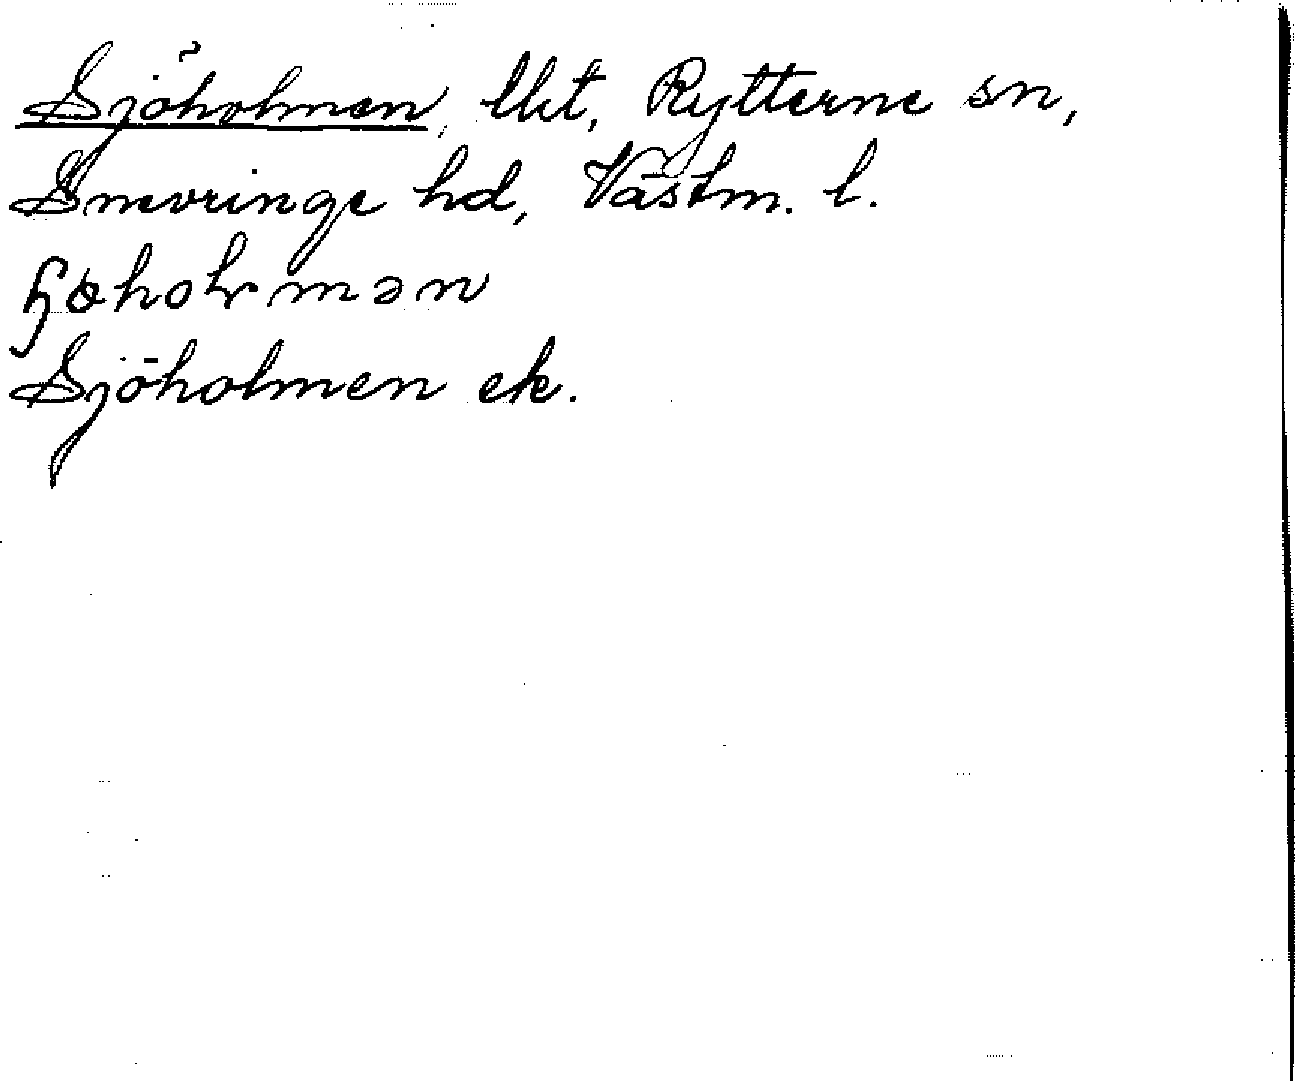 Sjöholmen, lht, Rytterne sn,
Snevringe hd, Västm. l.
ɧøholmən
Sjöholmen ek.